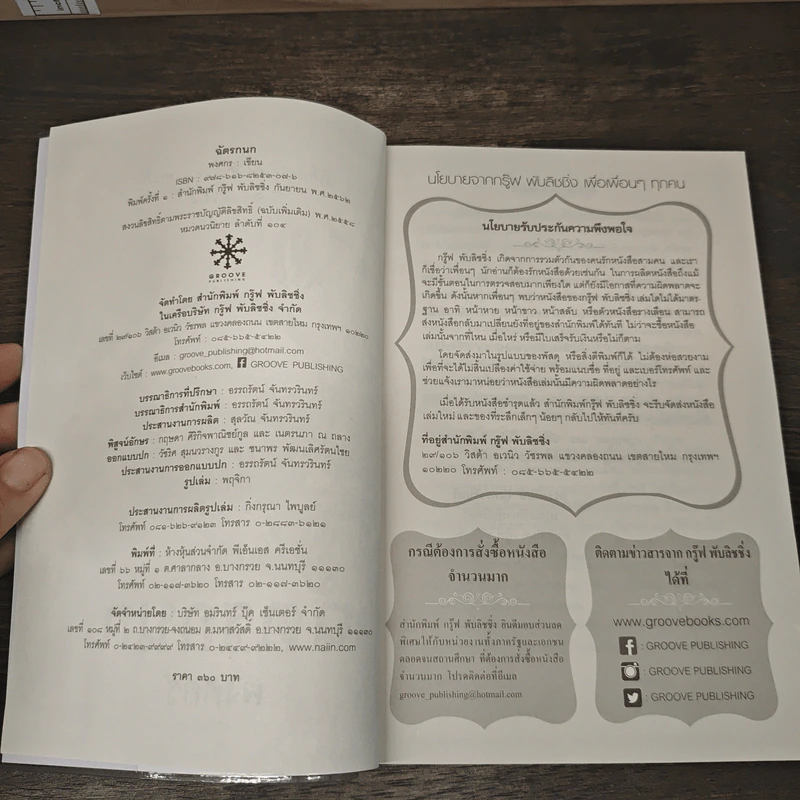 ฉัตรกนก
พงศกร : เขียน
ISBN : ๙๗๘-๖๑๖-๘๒๕๓-๐๗-๖
พิมพ์ครั้งที่ ๑ : สำนักพิมพ์ กรู๊ฟ พับลิชชิ่ง กันยายน พ.ศ.๒๕๖๒
สงวนลิขสิทธิ์ตามพระราชบัญญัติลิขสิทธิ์ (ฉบับเพิ่มเติม) พ.ศ.๒๕๕๘
หมวดนวนิยาย ลำดับที่ ๑๐๔
GROOVE
PUBLISHING
จัดทำโดย สำนักพิมพ์ กรู๊ฟ พับลิชชิ่ง
ในเครือบริษัท กรู๊ฟ พับลิชชิ่ง จำกัด
เลขที่ ๒๙/๑๐๖ วิสต้า อเวนิว วัชรพล แขวงคลองถนน เขตสายไหม กรุงเทพฯ ๑๐๒๒๐
โทรศัพท์ : ๐๘๕-๖๖๕-๕๔๒๒
อีเมล : groove_publishing@hotmail.com
เว็บไซต์ : www.groovebooks.com, GROOVE PUBLISHING
บรรณาธิการที่ปรึกษา : อรรถรัตน์ จันทรวรินทร์
บรรณาธิการสำนักพิมพ์ : อรรถรัตน์ จันทรวรินทร์
ประสานงานการผลิต : สุลวัณ จันทรวรินทร์
พิสูจน์อักษร : กฤษดา ศิริกิจพาณิชย์กูล และ เนตรนภา ณ ถลาง
ออกแบบปก : วัชริศ สุมนวรางกูร และ ชนาพร พัฒนเลิศรัตนไชย
ประสานงานการออกแบบปก : อรรถรัตน์ จันทรวรินทร์
รูปเล่ม : พฤจิกา
ประสานงานการผลิตรูปเล่ม : กิ่งกรุณา ไพบูลย์
โทรศัพท์ ๐๘๑-๖๒๖-๙๑๒๓ โทรสาร ๐-๒๘๘๓-๖๑๒๑
พิมพ์ที่ : ห้างหุ้นส่วนจำกัด พีเอ็นเอส ครีเอชั่น
เลขที่ ๖๖ หมู่ที่ ๑ ต.ศาลากลาง อ.บางกรวย จ.นนทบุรี ๑๑๑๓๐
โทรศัพท์ ๐๒-๑๑๗-๓๖๒๐ โทรสาร ๐๒-๑๑๗-๓๖๒๐
จัดจำหน่ายโดย : บริษัท อมรินทร์ บุ๊ค เซ็นเตอร์ จำกัด
เลขที่ ๑๐๘ หมู่ที่ ๒ ถ.บางกรวย-จงถนอม ต.มหาสวัสดิ์ อ.บางกรวย จ.นนทบุรี ๑๑๑๓๐
โทรศัพท์ ๐-๒๔๒๓-๙๙๙๙ โทรสาร ๐-๒๔๔๙-๙๒๒๒, www.naiin.com
ราคา ๓๖๐ บาท
นโยบายจากกรู๊ฟ พับลิชชิ่ง เพื่อเพื่อนๆ ทุกคน
นโยบายรับประกันความพึงพอใจ
กรู๊ฟ พับลิชชิ่ง เกิดจากการรวมตัวกันของคนรักหนังสือสามคน และเรา
ก็เชื่อว่าเพื่อนๆ นักอ่านก็ต้องรักหนังสือด้วยเช่นกัน ในการผลิตหนังสือถึงแม้
จะมีขั้นตอนในการตรวจสอบมากเพียงใด แต่ก็ยังมีโอกาสที่ความผิดพลาดจะ
เกิดขึ้น ดังนั้นหากเพื่อนๆ พบว่าหนังสือของกรู๊ฟ พับลิชชิ่ง เล่มใดไม่ได้มาตร-
ฐาน อาทิ หน้าหาย หน้าขาว หน้าสลับ หรือตัวหนังสือรางเลือน สามารถ
ส่งหนังสือกลับมาเปลี่ยนยังที่อยู่ของสำนักพิมพ์ได้ทันที ไม่ว่าจะซื้อหนังสือ
เล่มนั้นจากที่ไหน เมื่อไหร่ หรือมีใบเสร็จรับเงินหรือไม่ก็ตาม
โดยจัดส่งมาในรูปแบบของพัสดุ หรือสิ่งตีพิมพ์ก็ได้ ไม่ต้องห่อสวยงาม
เพื่อที่จะได้ไม่สิ้นเปลืองค่าใช้จ่าย พร้อมแนบชื่อ ที่อยู่ และเบอร์โทรศัพท์ และ
ช่วยแจ้งเรามาหน่อยว่าหนังสือเล่มนั้นมีความผิดพลาดอย่างไร
เมื่อได้รับหนังสือชำรุดแล้ว สำนักพิมพ์กรู๊ฟ พับลิชชิ่ง จะรีบจัดส่งหนังสือ
เล่มใหม่ และของที่ระลึกเล็กๆ น้อยๆ กลับไปให้ทันทีครับ
ที่อยู่สำนักพิมพ์ กรู๊ฟ พับลิชชิ่ง
๒๙/๑๐๖ วิสต้า อเวนิว วัชรพล แขวงคลองถนน เขตสายไหม กรุงเทพฯ
๑๐๒๒๐ โทรศัพท์ : ๐๘๕-๖๖๕-๕๔๒๒
กรณีต้องการสั่งซื้อหนังสือ
จำนวนมาก
สำนักพิมพ์ กรู๊ฟ พับลิชชิ่ง ยินดีมอบส่วนลด
พิเศษให้กับหน่วยงานทั้งภาครัฐและเอกชน
ตลอดจนสถานศึกษา ที่ต้องการสั่งซื้อหนังสือ
จำนวนมาก โปรดติดต่อที่อีเมล
groove_publishing@hotmail.com
ติดตามข่าวสารจาก กรู๊ฟ พับลิชชิ่ง
ได้ที่
www.groovebooks.com
: GROOVE PUBLISHING
: GROOVE PUBLISHING
: GROOVE PUBLISHING